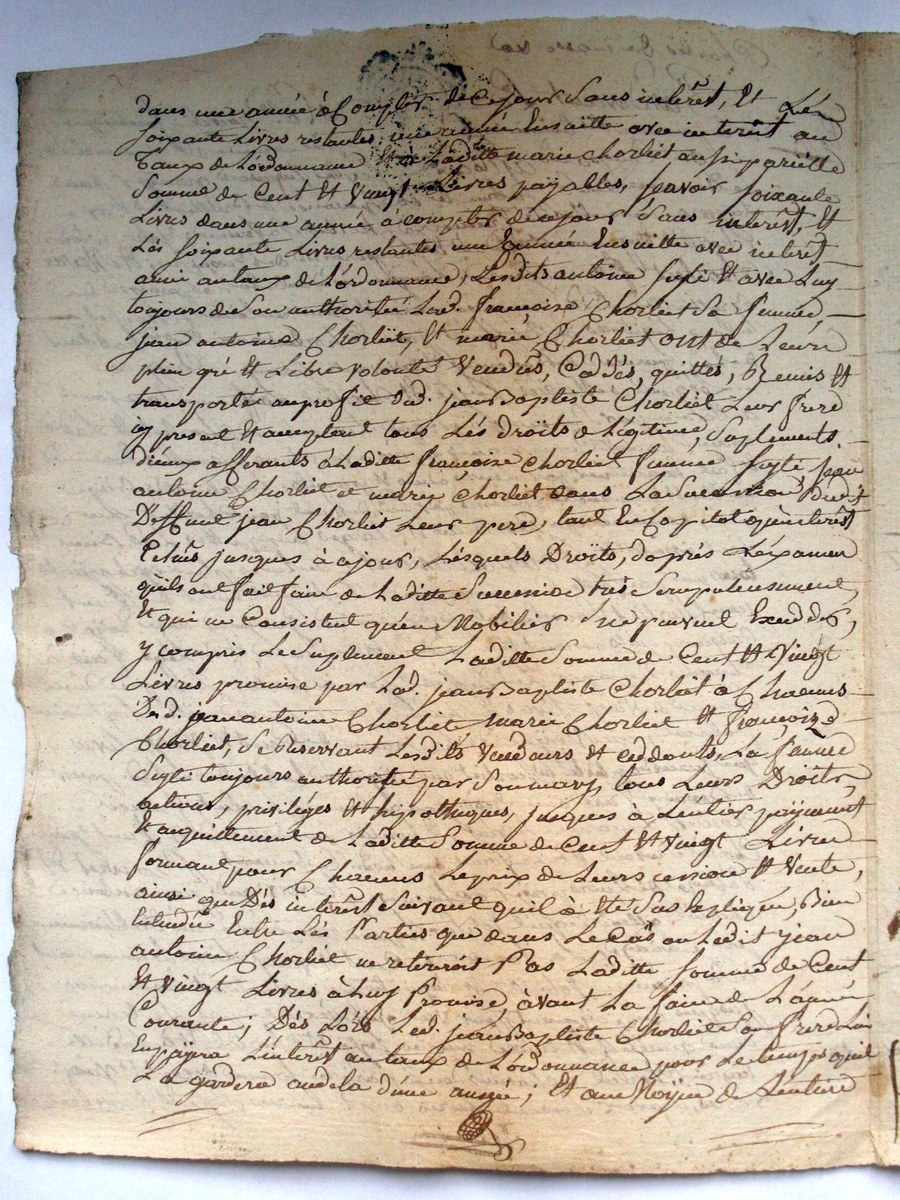 dans une année à Compter de ce jour Sans interêt, Et Les
soixante Livres restantes une année Ensuitte avec interêt au
Taux de L'ordonnance Et à Laditte marie Chorliet aussi pareille
Somme de Cent Et Vingt Livres payables, sçavoir soixante
Livres dans une année à compter de ce jour Sans interêt, Et
Les soixante Livres restantes une Année Ensuitte avec interêt
aussi au taux de L'ordonnance, Lesdits antoine Et avec Luy
toujours de Son authorité Lad. françoise Chorliet Sa femme,
jean antoine Chorliet, Et marie Chorliet ont de Leur
plein gré Et Libre volonté Vendus, Cèddés, quittés, Remis Et
transportés au profit dud. jean Baptiste Chorliet Leur frere
cy present Et acceptant tous Lés droits de Légitime, Suplements
d'iceux afferants à Laditte françoise Chorliet femme jean
antoine Chorliet et marie Chorliet dans La Succession dudit
Deffunt jean Chorliet Leur pere, tant En Capital qu'interêt
Echus jusques à ce jour, Lésquels Droits, daprés Léxamen
quils ont fait faire de Laditte Succession trés Scrupuleusement,
Et qui ne Consistent qu'en Mobilier ne peuvent Exedder,
y compris Le Suplement Laditte Somme de Cent Et Vingt
Livres promise par Led. jean Baptiste Chorliet à Chacuns
Desd. jean antoine Chorliet marie Chorliet Et françoise
Chorliet, Se Réservant Lesdits Vendeurs Et ceddants, La femme
toujours authorisée par Son mary, tous Leurs Droits,
actions, priviléges Et hypothéques, jusques à L'entier payement
Et acquittement de Laditte Somme de Cent Et Vingt Livres
formant pour Chacuns Le prix de Leurs cession Et Vente,
ainsi que Dés interêt Suivant quil à Eté Sus Expliqué, Bien
Entendu Entre Lés Parties que dans Le Cas ou Ledit jean
antoine Chorliet ne retireroit Pas Laditte somme de Cent
Et Vingt Livres à Luy Promise, avant La fin de L'année
Courante; Dés Lors Led. jean Baptiste Chorliet Son frere Lui
En payera L'interêt au taux de L'ordonnance pour Le temps quil
La gardera audela d'une année; Et au Moyen de